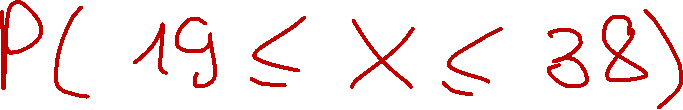 P( 19 ≤ X ≤ 38)